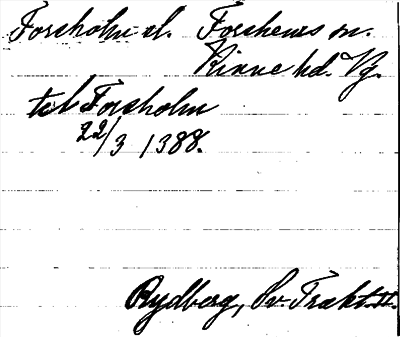 Forsholm el. Forshems sn.
Kinne hd. Vg.
tel Forsholm
22/3 1388.
Rydberg, Sv. Trakt. II.